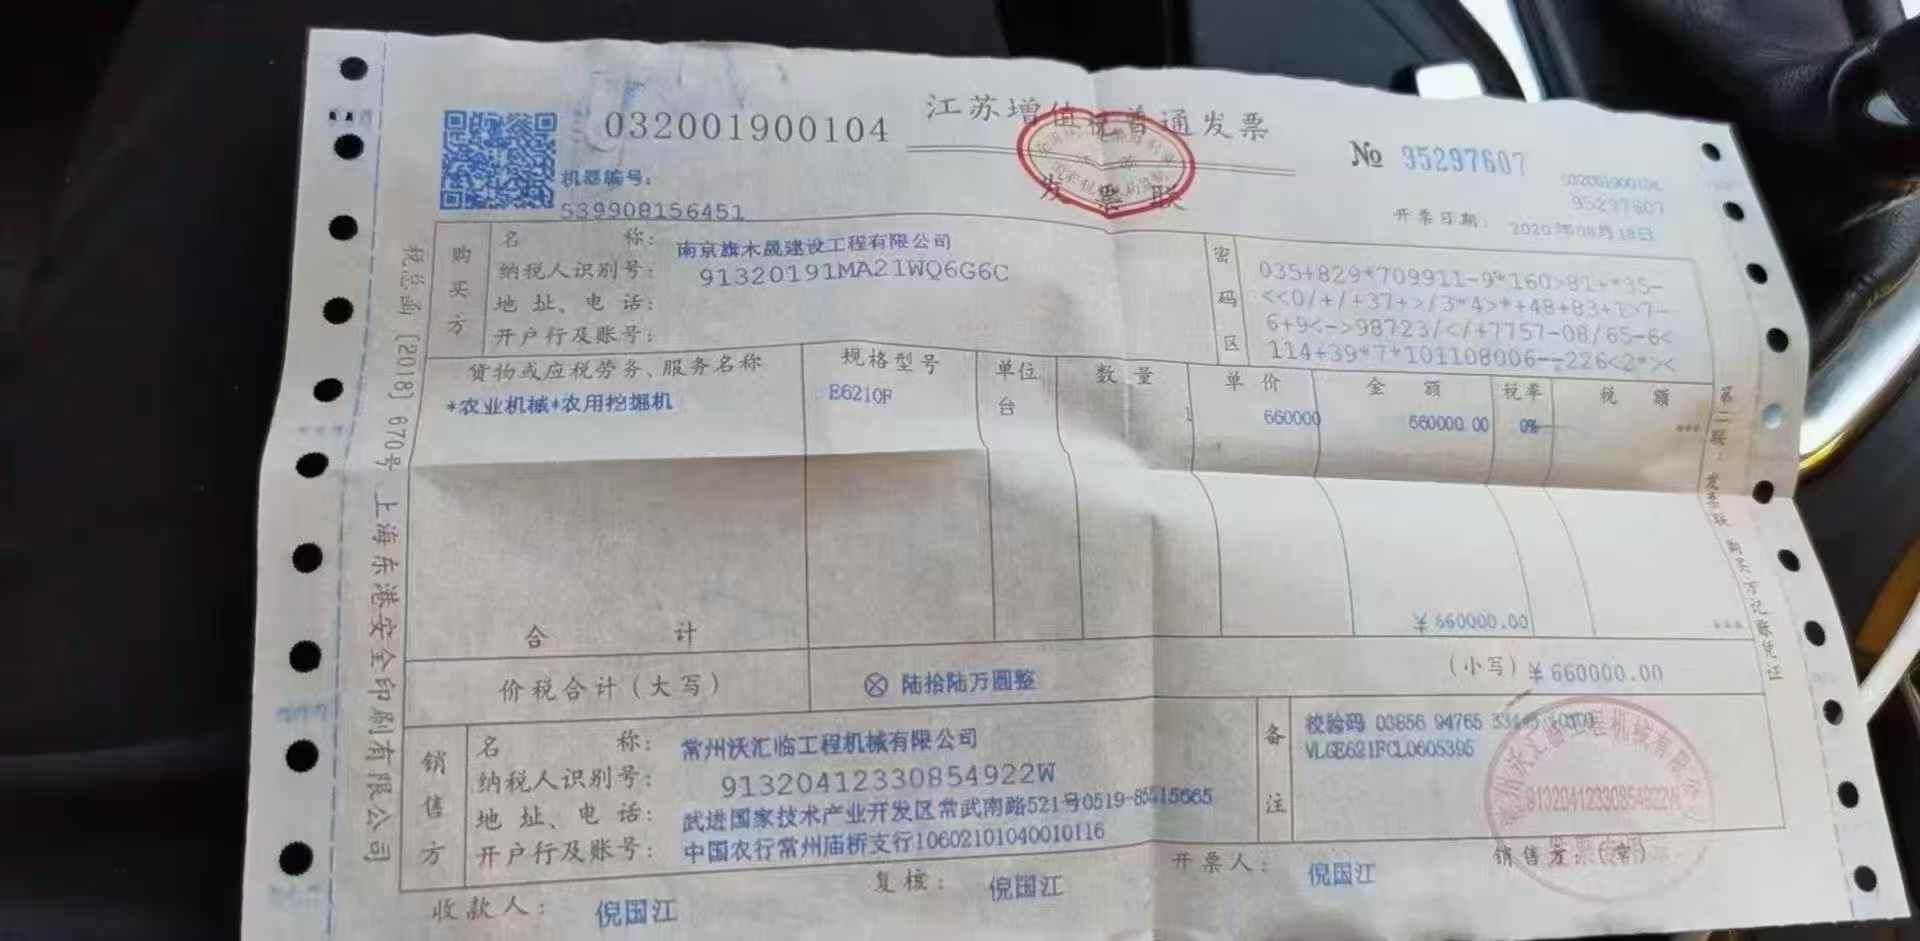 032001900104
江苏增值税普通发票
发票联
№ 95297607
032001900104
95297607
机器编号:
539908156451
开票日期: 2020年08月18日
购买方
名 称: 南京旗木晟建设工程有限公司
纳税人识别号: 91320191MA21WQ6G6C
地 址、电 话:
开户行及账号:
密码区
035+829*709911-9*160>81+*35-
<<0/+/+37+>/3*4>*+48+83+1>7-
6+9<->98723/</+7757-08/65-6<
114+39*7*101108006--226<2*><
货物或应税劳务、服务名称 规格型号 单位 数 量 单 价 金 额 税率 税 额
*农业机械*农用挖掘机 E6210F 台 1 660000 660000.00 0% ***
合 计 ¥660000.00 ***
价税合计(大写) ⊗ 陆拾陆万圆整 (小写) ¥660000.00
销售方
名 称: 常州沃汇临工程机械有限公司
纳税人识别号: 91320412330854922W
地 址、电 话: 武进国家技术产业开发区常武南路521号0519-85515665
开户行及账号: 中国农行常州庙桥支行10602101040010116
备注
校验码 03856 94765
VLGE621FCL0605395
91320412330854922W
收款人: 倪国江 复核: 倪国江 开票人: 倪国江 销售方:(章)
税总函[2018]670号 上海东港安全印刷有限公司
第二联:发票联 购买方记账凭证